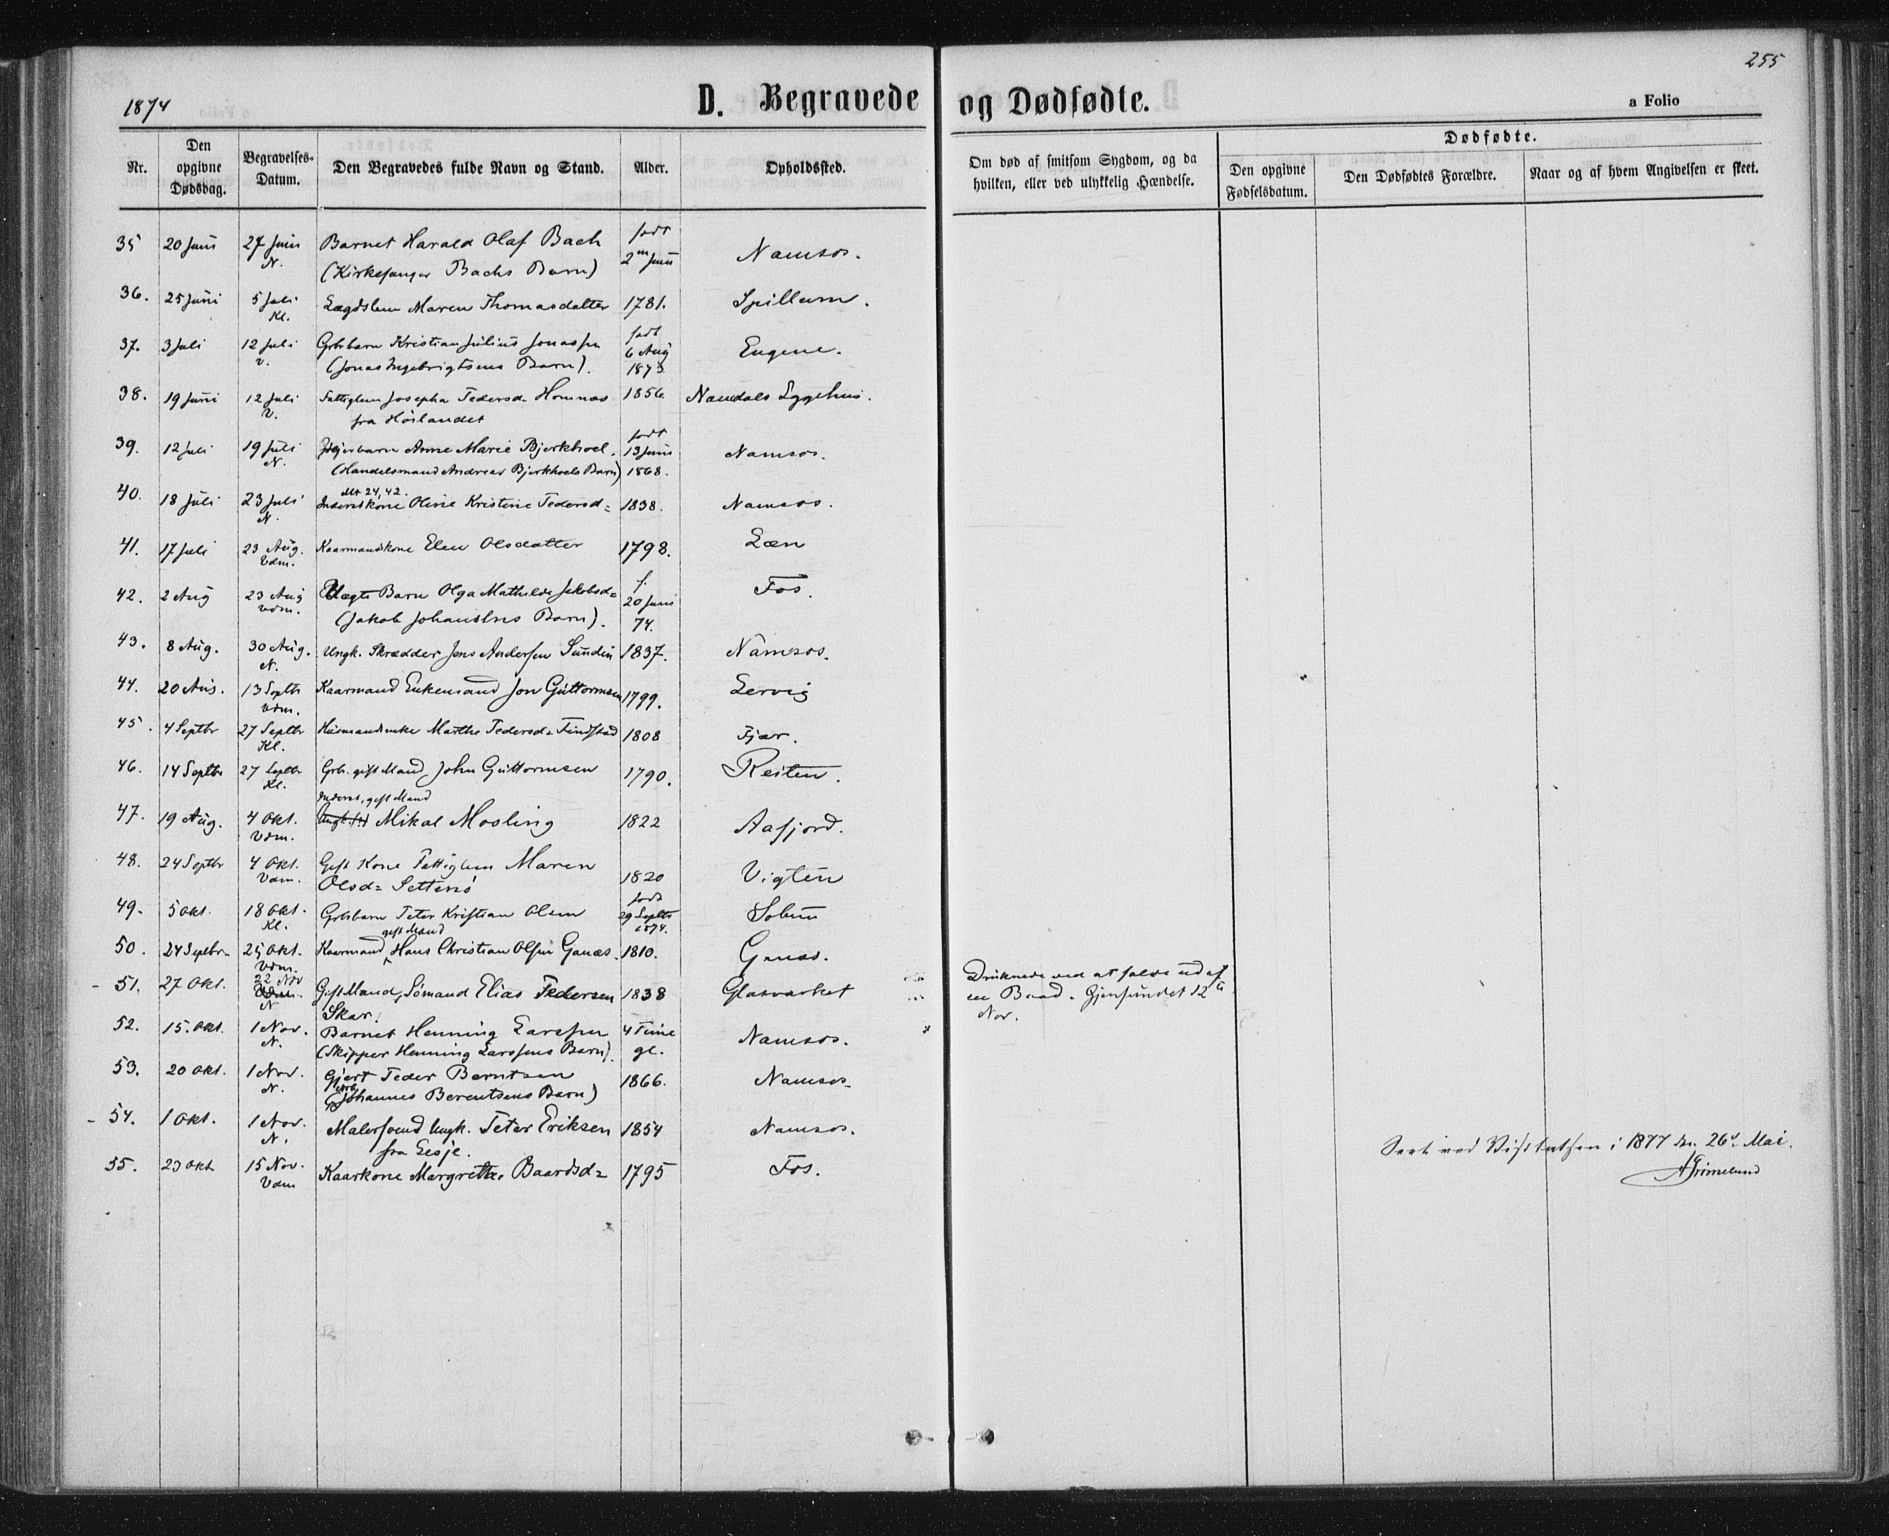 255
1874
D. Begravede og Dødfødte.
a Folio
Nr.
Den opgivne Dødsdag.
Begravelses-Datum.
Den Begravedes fulde Navn og Stand.
Alder.
Opholdssted.
Om død af smitsom Sygdom, og da hvilken, eller ved ulykkelig Hændelse.
Dødfødte.
Den opgivne Fødselsdatum.
Den Dødfødtes Forældre.
Naar og af hvem Angivelsen er skeet.
35 20 Juni 27 Juni N. Barnet Harald Olaf Bach født 2den Juni Namsos.
(Kirkesanger Bachs Barn)
36. 25 Juni 5 Juli Kl. Lægdslem Maren Thomasdatter 1781. Spillum.
37. 3 Juli 12 Juli V. Grbsbarn Kristian Julius Jonassen født 6 Aug 1873 Eugene.
(Jonas Ingebrigtsens Barn).
38. 19 Juni 12 Juli V. Fattiglem Josepha Pedersd. Homnæs 1856. Namdals Sygehus.
fra Høilandet
39. 12 Juli 19 Juli N. Anne Marie Bjerkhoel. født 13 Juni 1868. Namsos.
(Handelsmand Andreas Bjerkhoels Barn)
40. 18 Juli 23 Juli N. Inderstkone Oline Kristine Pedersd= 1838. Namsos.
41. 17 Juli 23 Aug. Vdm. Kaarmandskone Elen Olsdatter 1798. Læn
42. 2 Aug 23 Aug Vdm. Uægte Barn Olga Mathilde Jakobsd= f. 20 Juni 74. Fos.
(Jakob Johansens Barn).
43. 8 Aug. 30 Aug. N. Ungk. Skrædder Jens Andersen Sundin 1837. Namsos.
44. 20 Aug. 13 Septbr Vdm. Kaarmand Enkemand Jon Guttormsen 1799. Lervig
45. 4 Septbr 27 Septbr Kl. Husmandsenke Marthe Pedersd= Findstad 1808 Fjær.
46. 14 Septbr 27 Septbr Kl. Grb. gift Mand, John Guttormsen 1790. Reiten.
47. 19 Aug. 4 Okt. Vdm. Inderst, gift Mand Mikal Mosling 1822 Aafjord.
48. 24 Septbr 4 Okt. Vdm. Gift Kone Fattiglem Maren 1820 Vigten
Olsd= Setternø
49. 5 Okt. 18 Okt. Kl. Grbsbarn Peter Kristian Olsen født 29 Septbr 1874. Solum
50. 24 Septbr 25 Okt. Vdm. Kaarmand, gift Mand Hans Christian Olsen Ganæs. 1810. Ganæs.
51. 27 Okt. 22 Nov N Gift Mand, Sømand Elias Pedersen 1838 Glasværket
Skar.
Druknede ved at falde ud af
en Baad. Gjenfundet 12te
Nov.
52. 15. Okt. 1 Nov. N. Barnet Henning Larssen 4 Time gl. Namsos.
(Skipper Henning Larssens Barn).
53. 20 Okt. 1 Nov. N. Gjert Peder Berntsen 1866. Namsos.
(Johannes Berentsens Barn)
54. 1 Okt. 1 Nov. N. Malersvend Ungk. Peter Eriksen 1854 Namsos.
fra Lesje.
55. 23 Okt 15 Nov. Vdm Kaarkone Margrethe Baardsd= 1795 Fos.
Seet ved Visitatsen i 1877 den 26de Mai.
AGrimelund